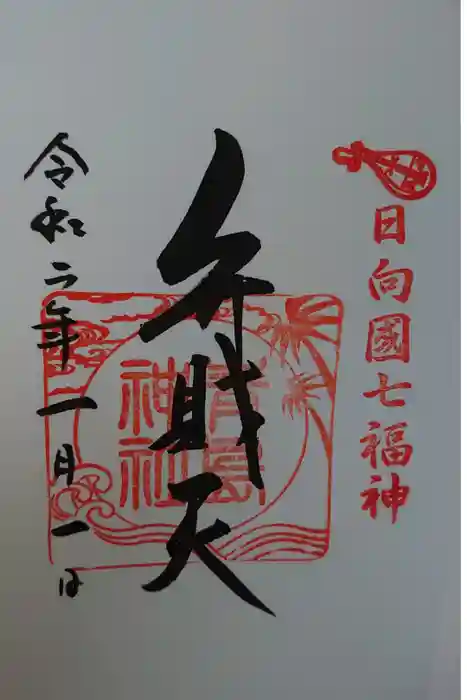 日向國七福神
弁財天
青島神社
令和二年一月一日